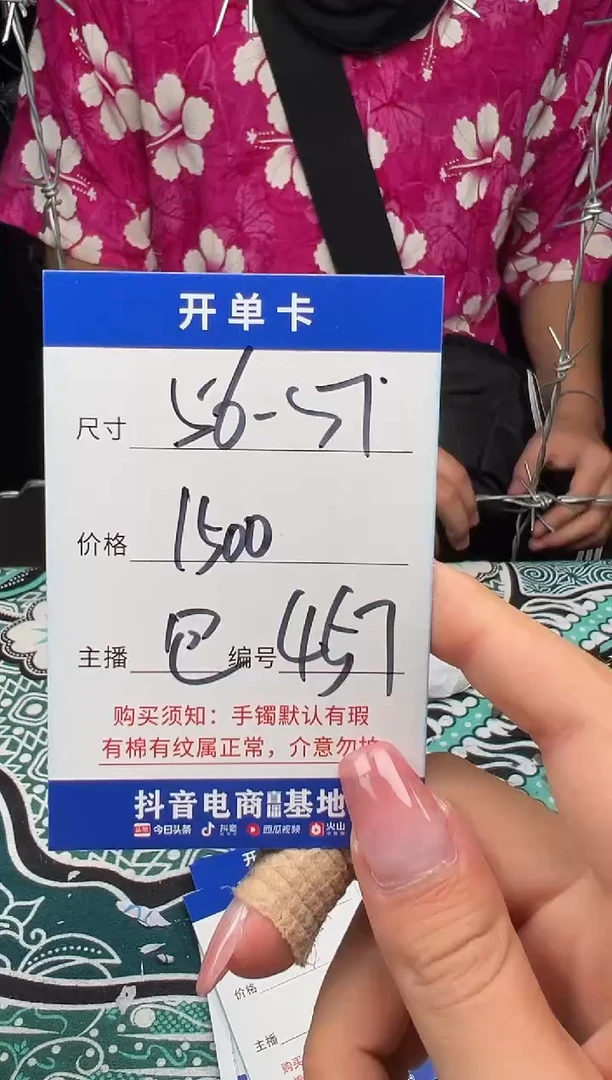 开单卡
尺寸 56-57
价格 1500
主播 编号 457
购买须知：手镯默认有瑕
有棉有纹属正常，介意勿拍
抖音电商直播基地
头条 今日头条 抖音 西瓜视频 火山
价格
主播
购买